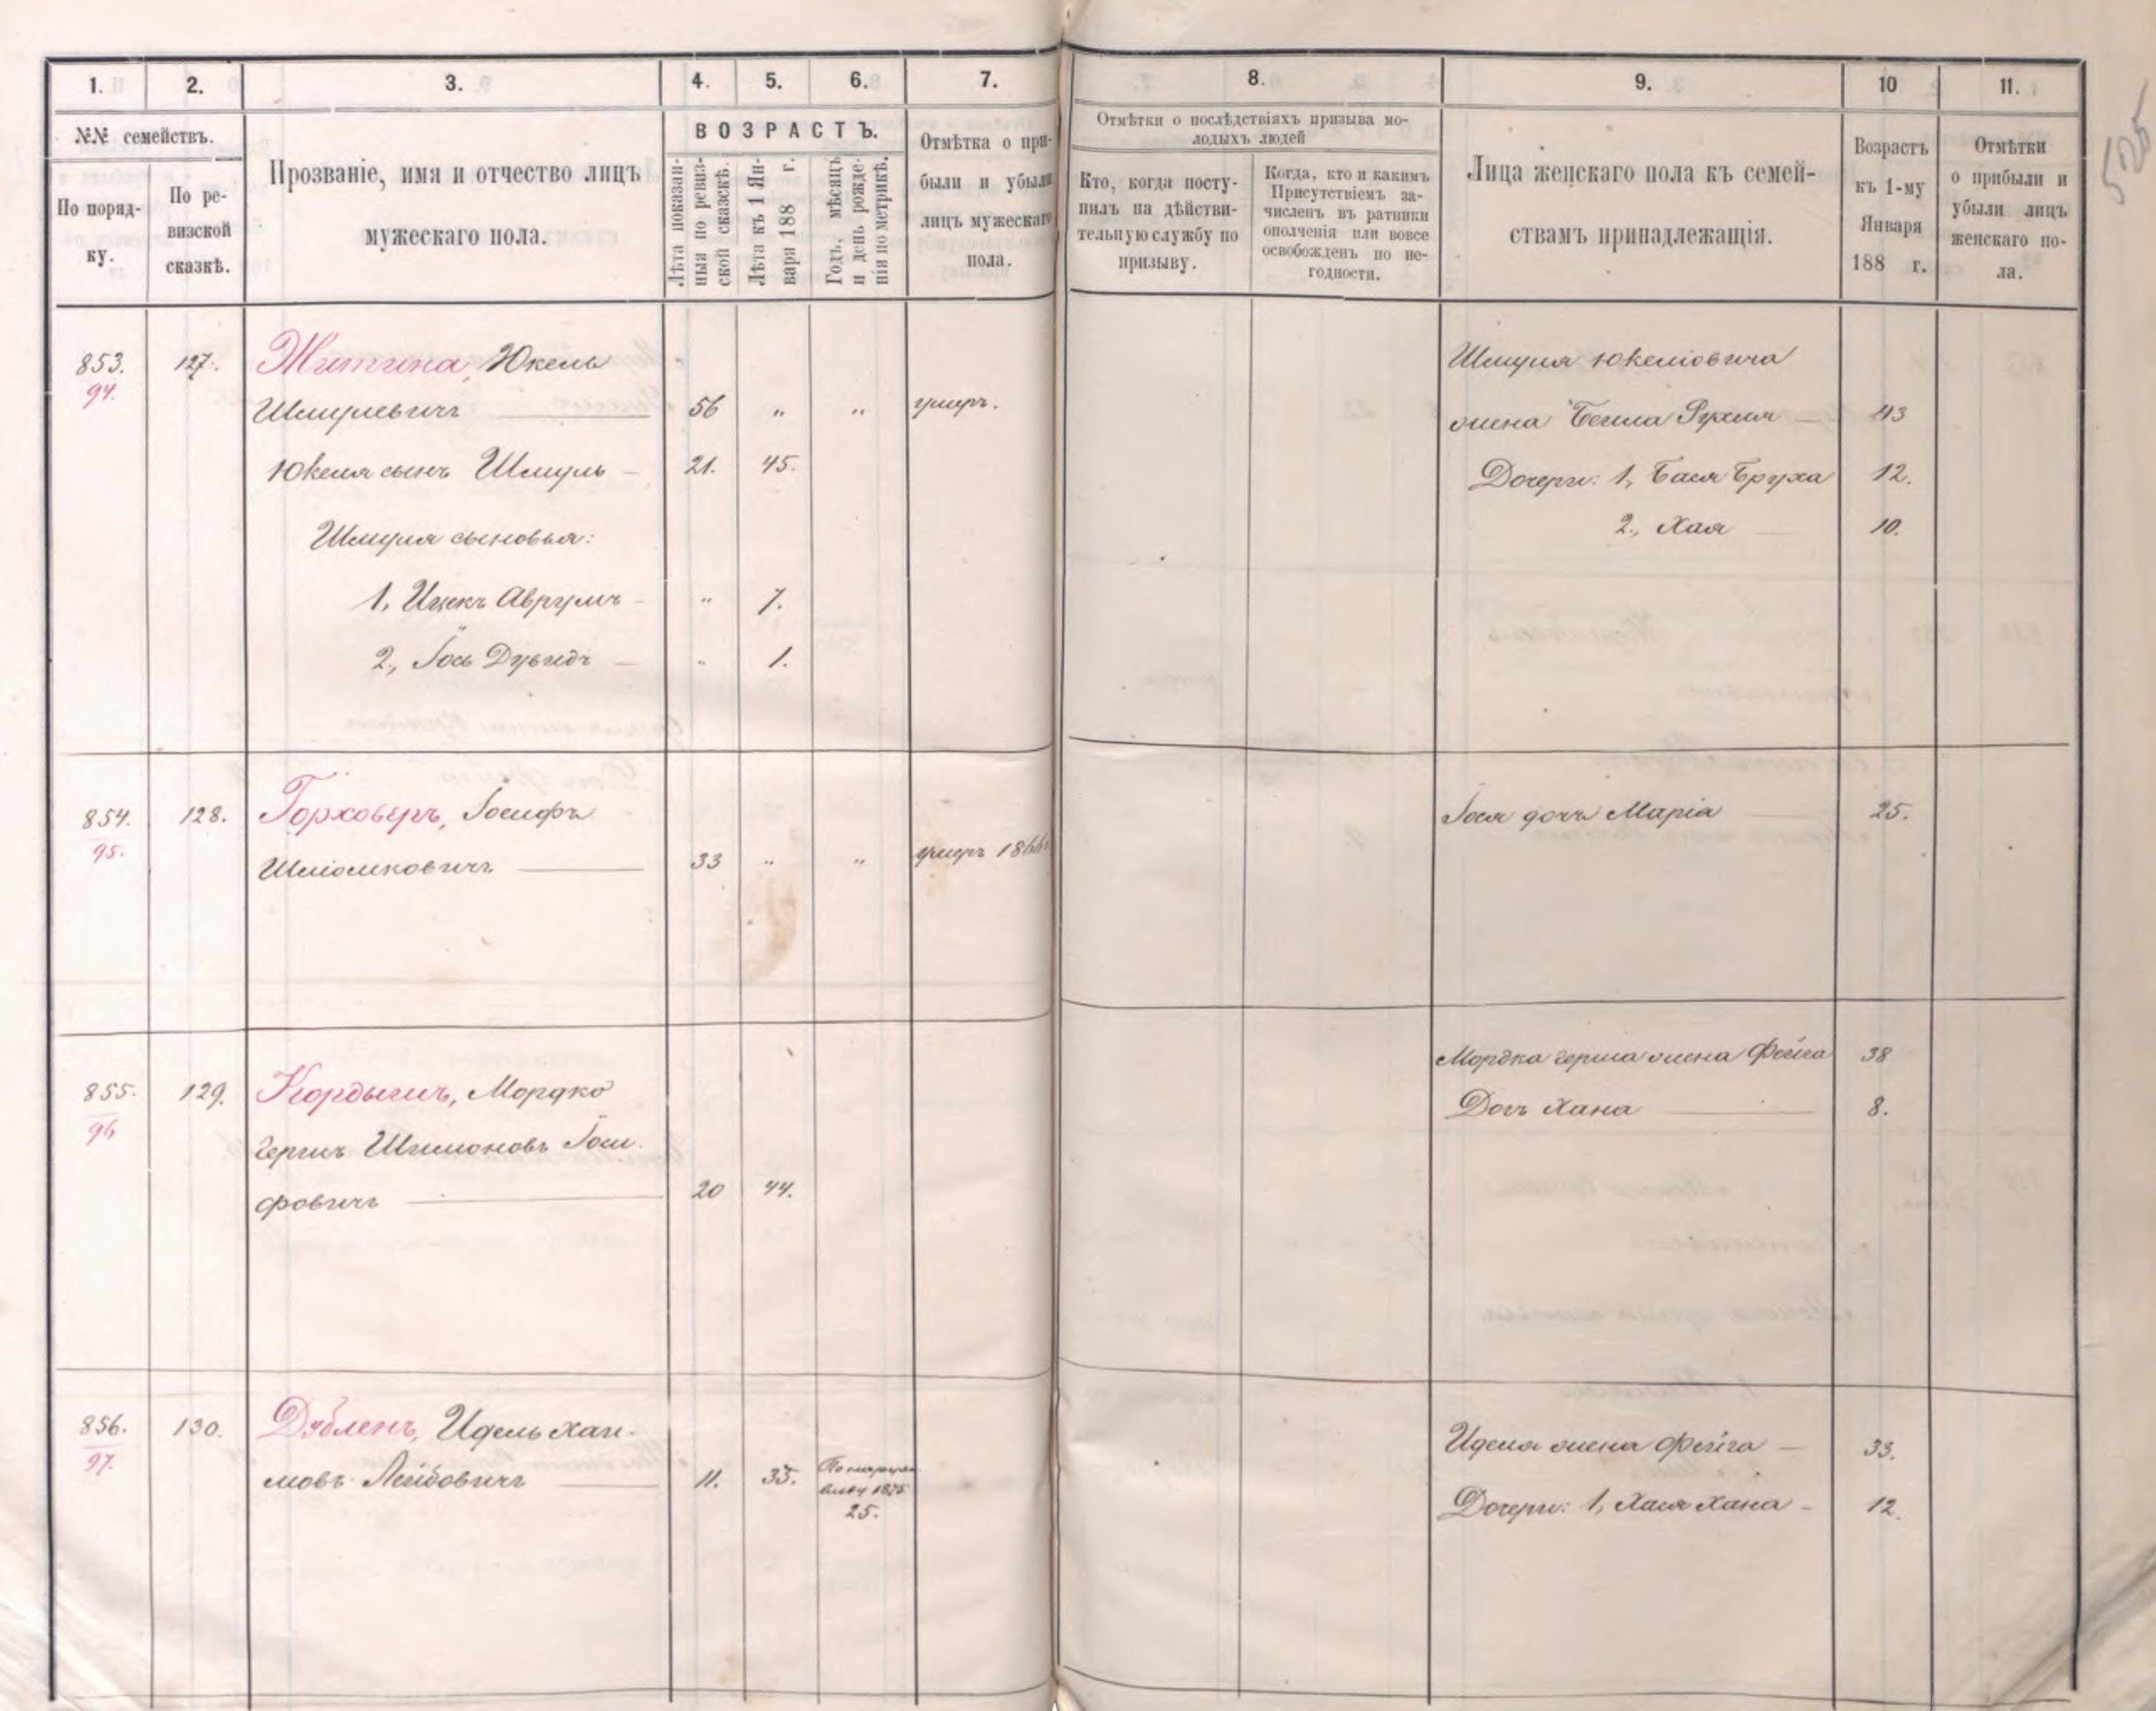 1. 2. 3. 4. 5. 6. 7. 8. 9. 10 11.
№№ семействъ.
По поряд-
ку.
По ре-
визской
сказкѣ.
Прозваніе, имя и отчество лицъ
мужескаго пола.
ВОЗРАСТЪ.
Лѣта показан-
ныя по ревиз-
ской сказскѣ.
Лѣта къ 1 Ян-
варя 188 г.
Годъ, мѣсяцъ
и день рожде-
нія по метрикѣ.
Отмѣтка о при-
были и убыли
лицъ мужескаго
пола.
Отмѣтки о послѣдствіяхъ призыва мо-
лодыхъ людей
Кто, когда посту-
пилъ на дѣйстви-
тельную службу по
призыву.
Когда, кто и какимъ
Присутствіемъ за-
численъ въ ратники
ополченія или вовсе
освобожденъ по не-
годности.
Лица женскаго пола къ семей-
ствамъ принадлежащія.
Возрастъ
къ 1-му
Января
188 г.
Отмѣтки
о прибыли и
убыли лицъ
женскаго по-
ла.
853. 127. Житина, Юкель
94. Шмулевичъ 56 „ „ умеръ.
Юкеля сынъ Шмуль 21. 45.
Шмуля сыновья:
1, Ицекъ Аврумъ „ 7.
2, Іось Дувидъ „ 1.
Шмуля Юкеліовича
жена Бейла Рухля 43
Дочери: 1, Бася Бруха 12.
2, Хая 10.
854. 128. Горховеръ, Іосифъ
95. Шліомковичъ 33 „ „ умеръ 1866
Іося дочь Марія 25.
855. 129. Кордышъ, Мордко
96 Гершъ Шимоновъ Іоси-
фовичъ 20 44.
Мордка Герша жена Фейга 38
Дочь Хана 8.
856. 130. Дубленъ, Идель Хаи-
97. мовъ Лейбовичъ 11. 35.
1875
25.
Иделя жена Фейга 33.
Дочери: 1, Хася Хана 12.